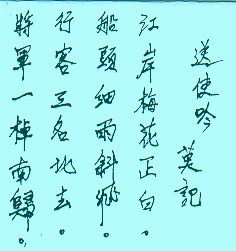 送使吟
英記
江岸梅花正白。
船頭細雨斜飛。
行客三名北去。
將軍一棹南歸。